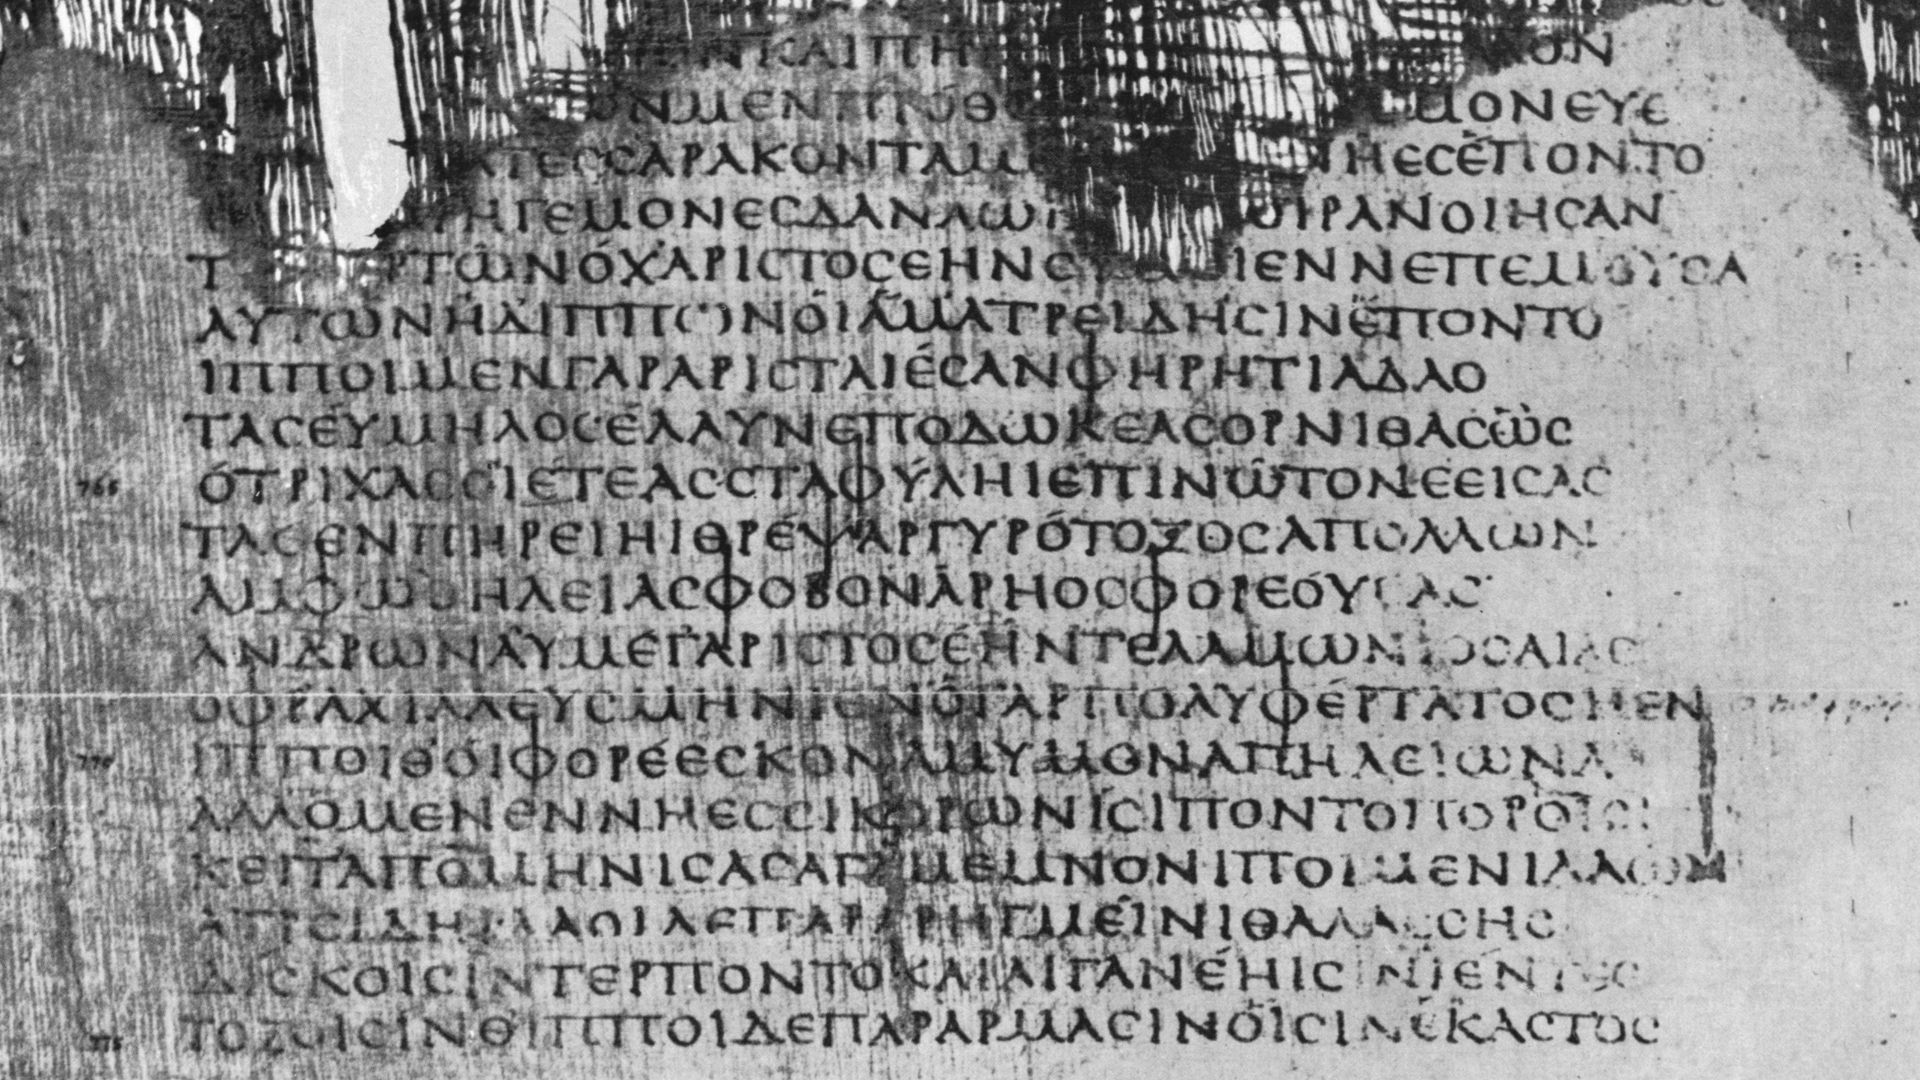 ΝΚΑΙΠΗ ΟΝ
ΩΝΜΕΝΠΡΟΘ ΜΟΝΕΥΕ
ΑΤΕϹϹΑΡΑΚΟΝΤΑΜ ΝΗΕϹΕΠΟΝΤΟ
ΗΓΕΜΟΝΕϹΔΑΝΑΩ ΟΙΡΑΝΟΙΗϹΑΝ
Τ ΡΤΩΝΌΧΆΡΙϹΤΟϹΕΗΝϹ ΙΕΝΝΕΠΕΜΟΥϹΑ
ΑΥΤΩΝΗΔΙΠΠΩΝΟΙΆΜΑΤΡΕΙΔΗϹΙΝΕΠΟΝΤΟ
ΙΠΠΟΙΜΕΝΓΑΡΑΡΙϹΤΑΙΈϹΑΝΦΗΡΗΤΙΑΔΑΟ
ΤΑϹΕΥΜΗΛΟϹΕΛΑΥΝΕΠΟΔΩΚΕΑϹΟΡΝΙΘΑϹὩϹ
765 ΌΤΡΙΧΑϹΟΙΕΤΕΑϹϹΤΑΦΎΛΗΙΕΠΙΝΩΤΟΝΕΕΙϹΑϹ
ΤΑϹΕΝΠΗΡΕΙΗΙΘΡΕΨΑΡΓΥΡΌΤΟΞΟϹΑΠΟΛΛΩΝ
ΑΜΦΩΘΗΛΕΙΑϹΦΟΒΟΝΑΡΗΟϹΦΟΡΕΟΎϹΑϹ
ΑΝΔΡΩΝΑΥΜΕΓΑΡΙϹΤΟϹΕΗΝΤΕΛΑΜΩΝΙΟϹΑΙΑϹ
ΟΦΡΑΧΙΛΛΕΥϹΜΗΝΙΕΝΟΓΑΡΠΟΛΥΦΕΡΤΑΤΟϹΗΕΝ
770 ΙΠΠΟΙΘΟΙΦΟΡΕΕϹΚΟΝΑΜΥΜΟΝΑΠΗΛΕΙΩΝΑ
ΑΛΛΟΜΕΝΕΝΝΗΕϹϹΙΚΟΡΩΝΙϹΙΠΟΝΤΟΠΟΡΟΙϹΙ
ΚΕΙΤΑΠΟΜΗΝΙϹΑϹΑΓΑΜΕΜΝΟΝΙΠΟΙΜΕΝΙΛΑΩΝ
ΑΤΡΕΙΔΗΙΛΑΟΙΔΕΠΑΡΑΡΗΓΜΕΙΝΙΘΑΛΑϹϹΗϹ
ΔΙϹΚΟΙϹΙΝΤΕΡΠΟΝΤΟΚΑΙΑΙΓΑΝΈΗΙϹΙΝΙΕΝΤΕϹ
775 ΤΟΞΟΙϹΙΝΘΙΠΠΟΙΔΕΠΑΡΑΡΜΑϹΙΝΟΙϹΙΝΕΚΑϹΤΟϹ